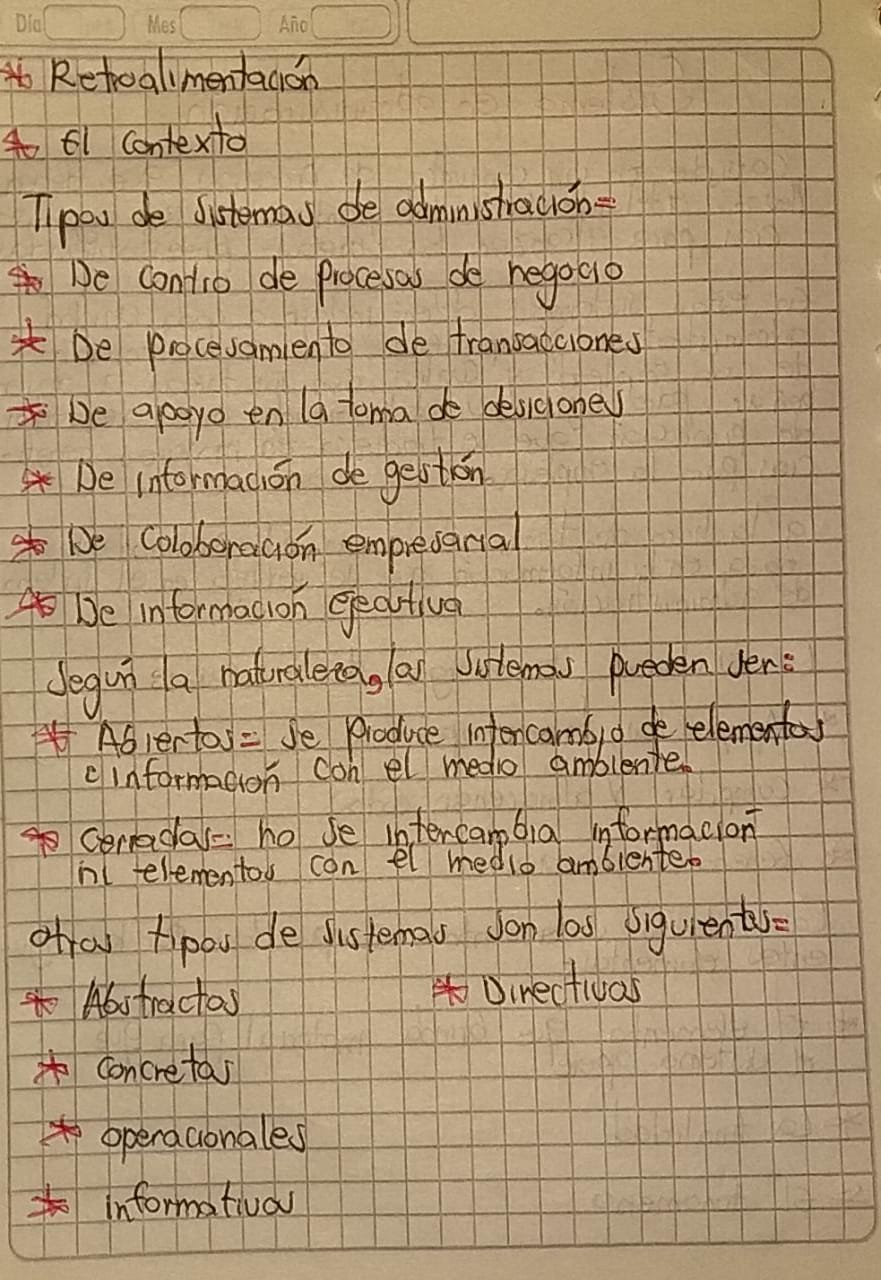 Día Mes Año
* Retroalimentación
* El contexto
Tipos de sistemas de administración=
* De contro de procesos de negocio
* De procesamiento de transacciones
* De apoyo en la toma de desiciones
* De información de gestión
* De coloboración empresarial
* De información ejecutiva
Según la naturaleza, los sistemas pueden ser:
* Abiertos= Se produce intercambio de elementos
e información con el medio ambiente.
* cerrados= no se intercambia información
ni elementos con el medio ambiente.
otros tipos de sistemas son los siguientes=
* Abstractos * Directivos
* concretos
* operacionales
* informativos